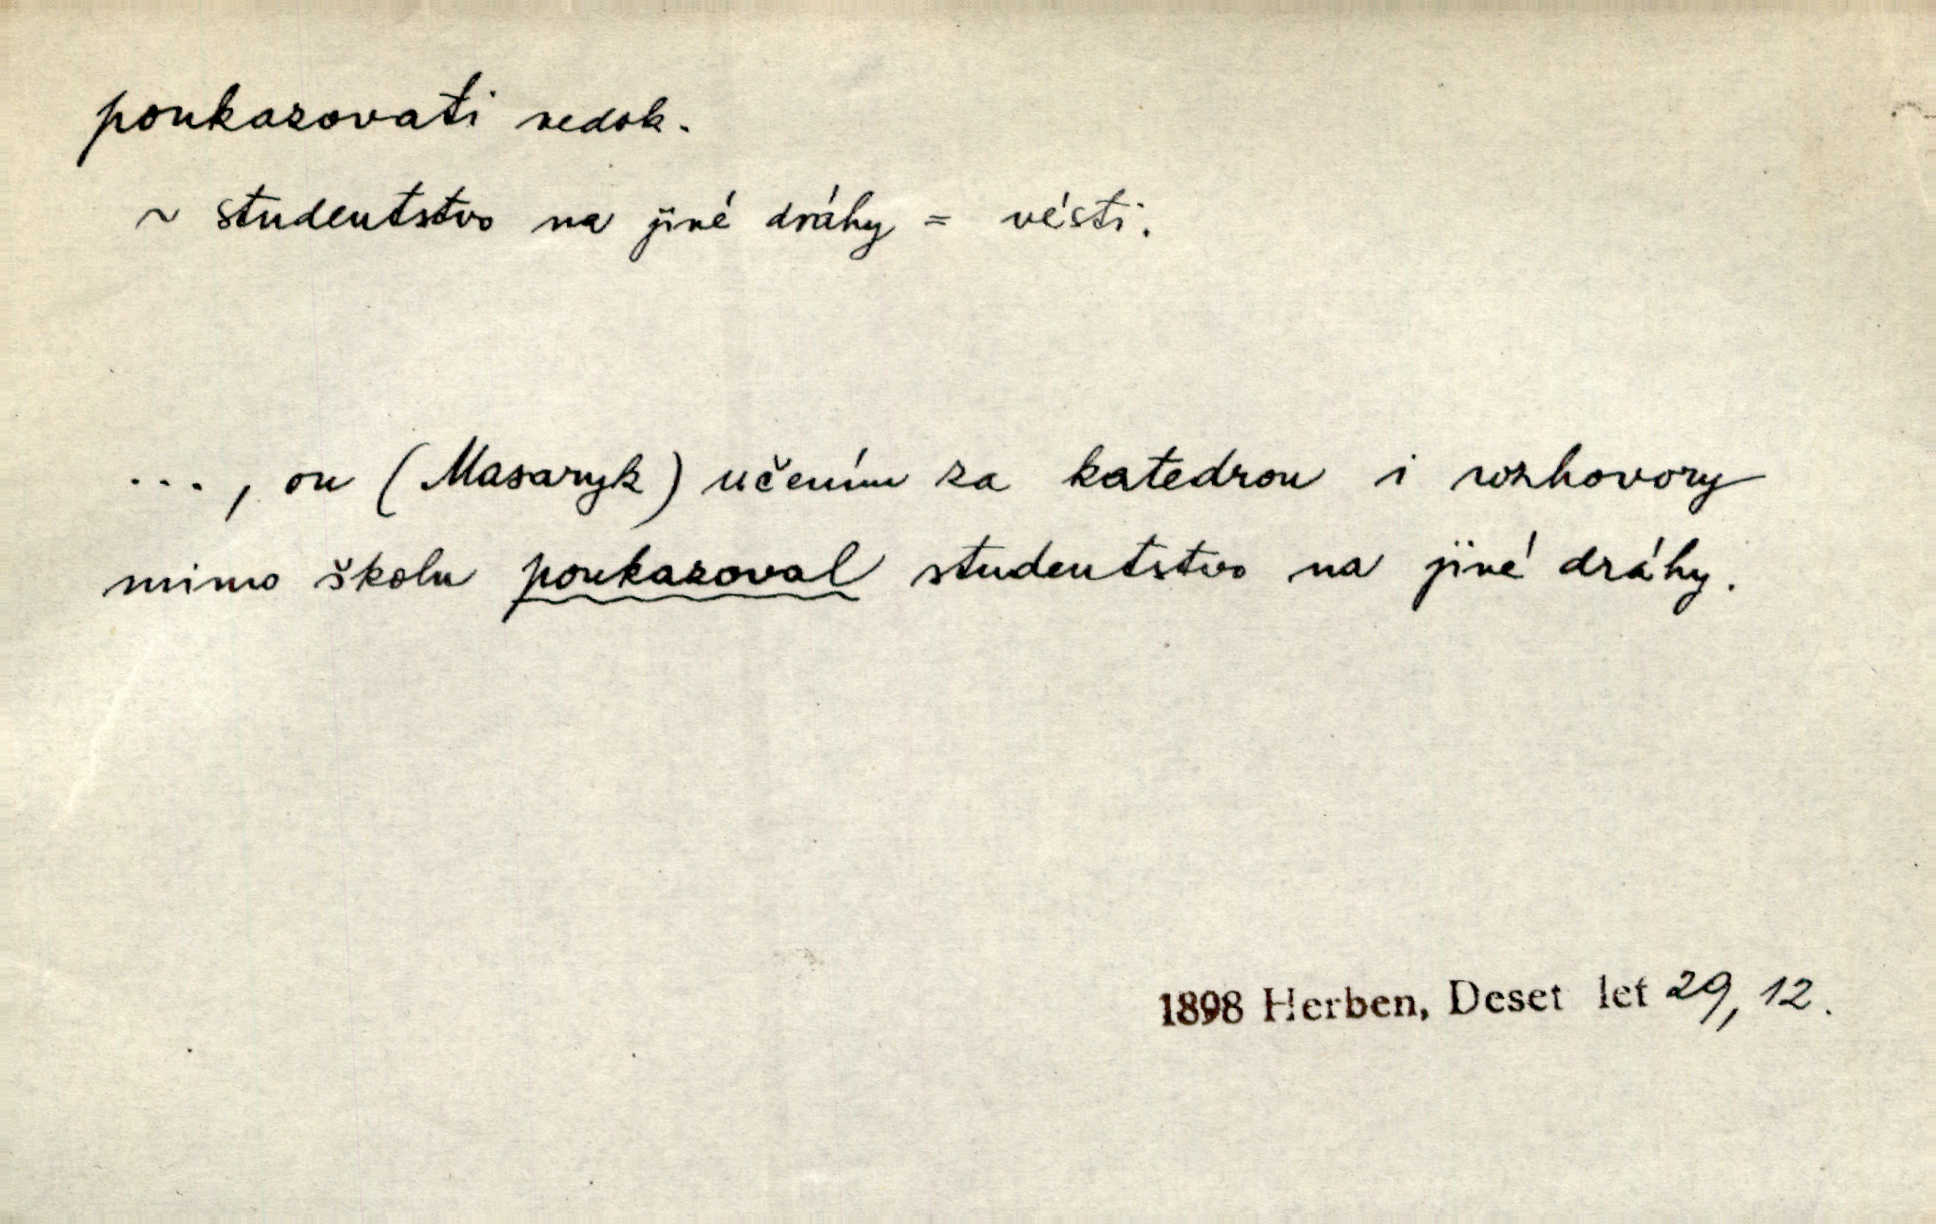 poukazovati nedok.
~ studentstvo na jiné dráhy = vésti.
..., on (Masaryk) učením za katedrou i rozhovory
mimo školu poukazoval studentstvo na jiné dráhy.
1898 Herben, Deset let 29, 12.